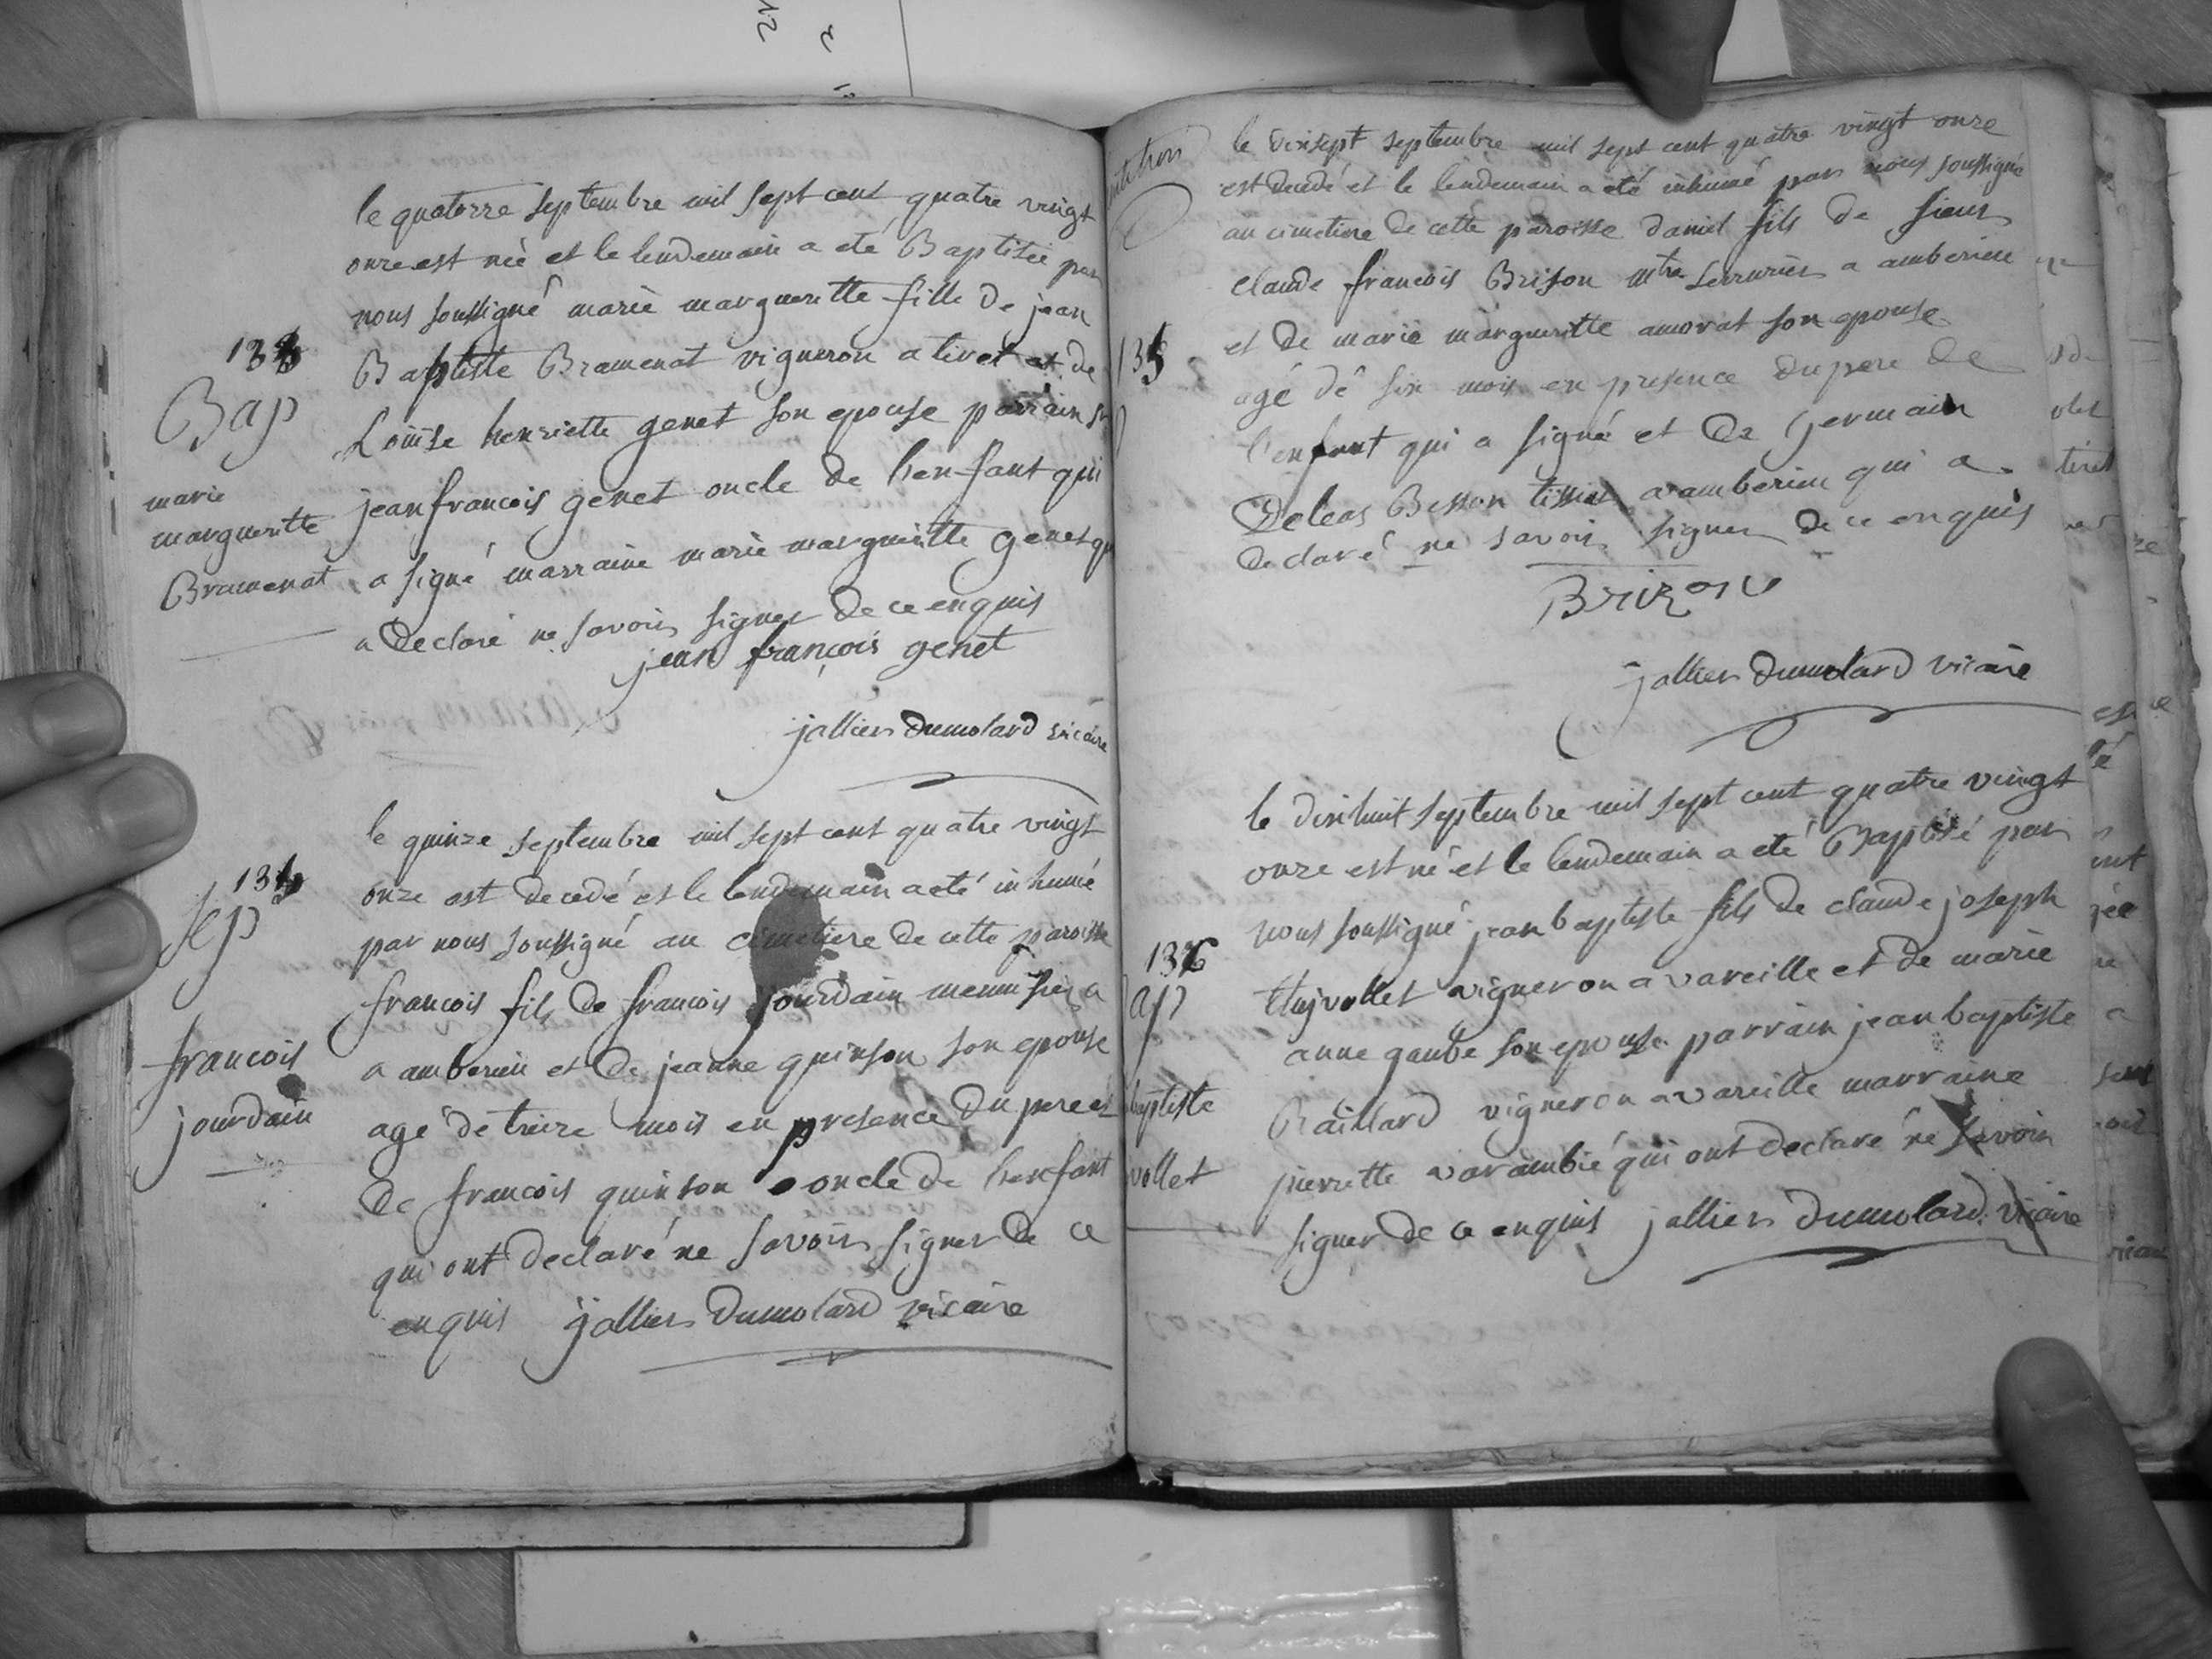 le quatorze septembre mil sept cent quatre vingt
onze est née et le lendemain a eté Baptisée par
nous soussigné marie margueritte fille de jean
133
Bap
marie
margueritte
Bramerat
Baptiste Bramerat vigneron a tiret et de
Loüise henriette genet son epouse parrain sr
jean francois genet oncle de lenfant qui
a signé marraine marie margueritte genet qui
a declaré ne savoir signer de ce enquis
jean françois genet
jallier dumolard vicaire
134
sep
francois
jourdain
le quinze septembre mil sept cent quatre vingt
onze est decedé et le lendemain a eté inhumé
par nous soussigné au cimetiere de cette paroisse
francois fils de francois jourdain menuisier a
a amberieu et de jeanne quinson son epouse
agé de treize mois en presence du pere et
de francois quinson oncle de lenfant
qui ont declaré ne savoir signer de ce
enquis jallier dumolard vicaire
135
le dixsept septembre mil sept cent quatre vingt onze
est decedé et le lendemain a eté inhumé par nous soussigné
au cimetiere de cette paroisse daniel fils de sieur
claude francois Brison mtre serrurier a amberieu
et de marie margueritte amorat son epouse
agé de six mois en presence du pere de
l'enfant qui a signé et de Germain
Deleas Besson tissier a amberieu qui a
declaré ne savoir signer de ce enquis
Brizon
jallier dumolard vicaire
136
ap
baptiste
vollet
le dixhuit septembre mil sept cent quatre vingt
onze est né et le lendemain a eté Baptisé par
nous soussigné jean baptiste fils de claude joseph
vigneron a vareille et de marie
anne gaube son epouse parrain jean baptiste
Raillard vigneron a vareille marraine
pierrette varambié qui ont declaré ne savoir
signer de ce enquis jallier dumolard vicaire